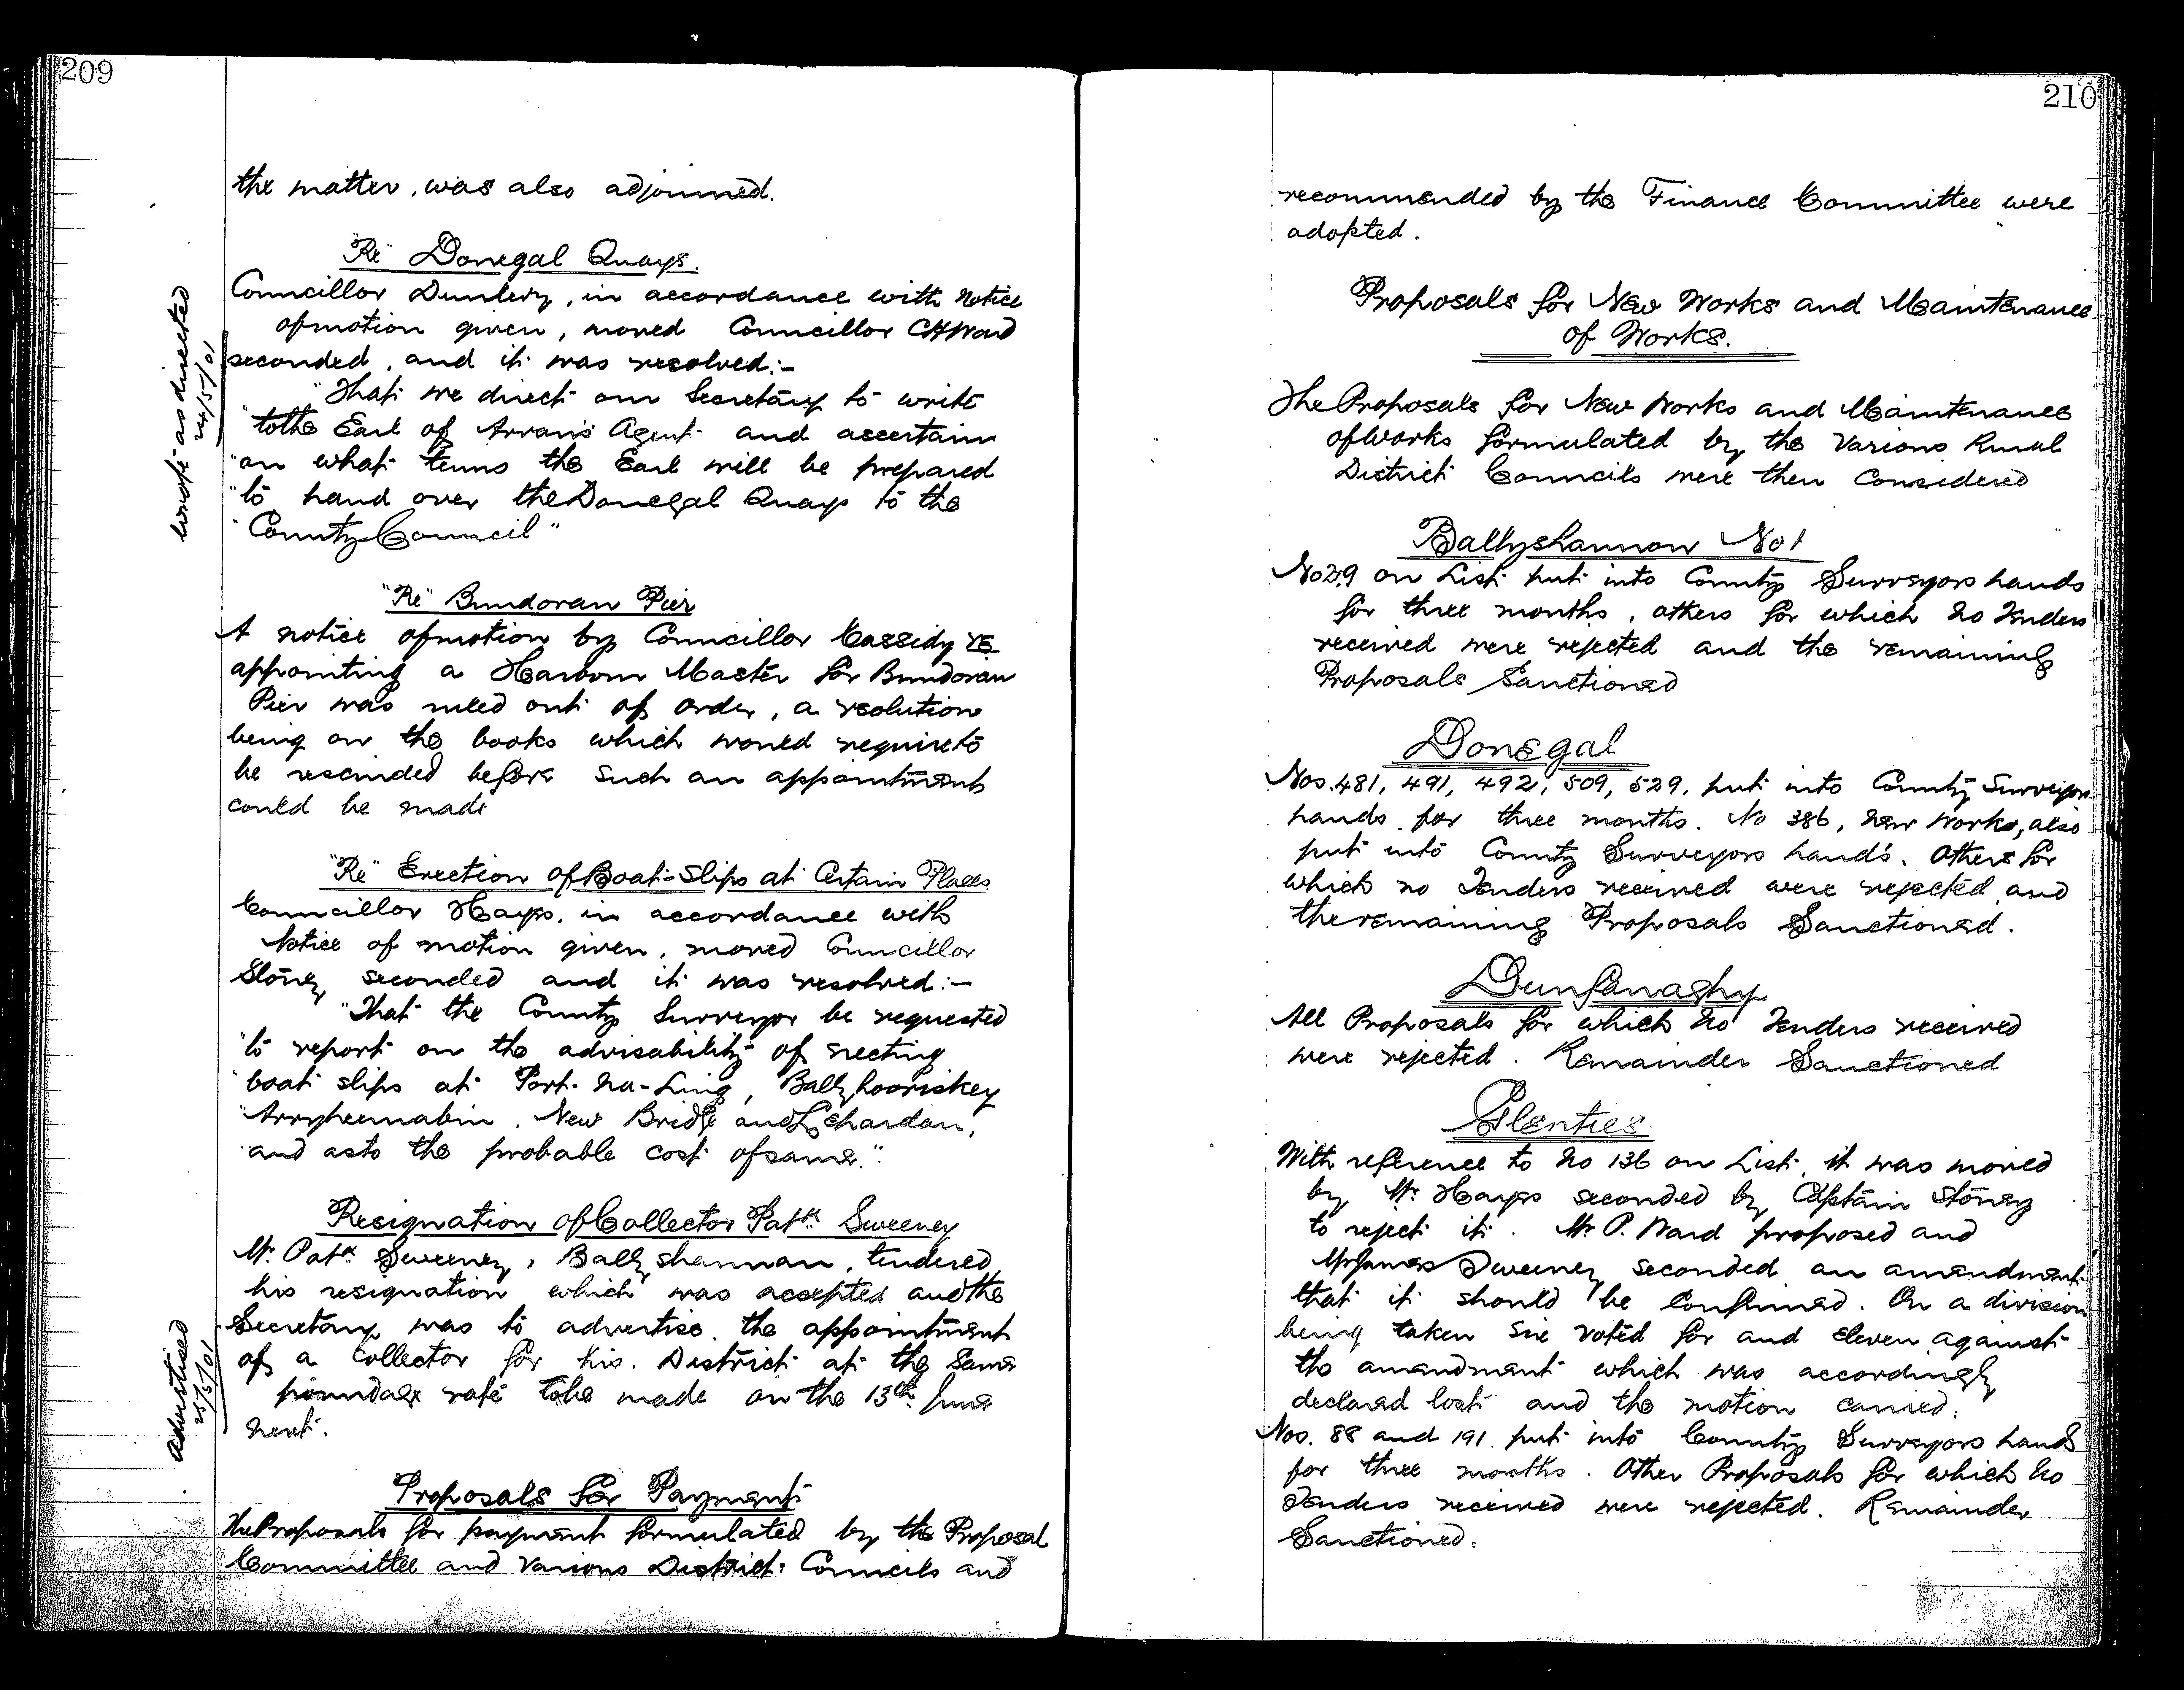 209
the matter, was also adjourned.
"Re" Donegal Quays.
Councillor Dunlevy, in accordance with notice
of motion given, moved Councillor CH Ward
seconded, and it was resolved:-
"That we direct our Secretary to write
"to the Earl of Arran's Agent and ascertain
"on what terms the Earl will be prepared
"to hand over the Donegal Quays to the
"County Council"
wrote as directed
24/5/01
"Re" Bundoran Pier
A notice of motion by Councillor Cassidy re
appointing a Harbour Master for Bundoran
Pier was ruled out of order, a resolution
being on the books which would require to
be rescinded before such an appointment
could be made
"Re" Erection of Boat-Slips at Certain Places
Councillor Hayes, in accordance with
Notice of motion given, moved Councillor
Stoney seconded and it was resolved:-
"That the County Surveyor be requested
"to report on the advisability of erecting
"boat slips at Port-na-Ling, Ballyhooriskey
New Bridge and
"and as to the probable cost of same."
Resignation of Collector Patk Sweeney
Mr. Patk Sweeney, Ballyshannon, tendered
his resignation which was accepted and the
Secretary was to advertise the appointment
of a Collector for his District at the same
poundage rate to be made on the 13th June
next.
advertised
25/5/01
Proposals for Payment
The Proposals for payment formulated by the Proposal
Committee and Various District Councils and
210
recommended by the Finance Committee were
adopted.
Proposals for New Works and Maintenance
of Works.
The Proposals for New Works and Maintenance
of Works formulated by the Various Rural
District Councils were then Considered
Ballyshannon No 1
No 29 on List put into County Surveyors hands
for three months, others for which no Tenders
received were rejected and the remaining
Proposals Sanctioned
Donegal
Nos. 481, 491, 492, 509, 529, put into County Surveyors
hands for three months. No 386, New Works, also
put into County Surveyors hands. Others for
which no Tenders received were rejected and
the remaining Proposals Sanctioned.
Dunfanaghy
All Proposals for which no Tenders received
were rejected. Remainder Sanctioned
Glenties
With reference to No 136 on List, it was moved
by Mr Hayes seconded by Captain Stoney
to reject it. Mr P. Ward proposed and
Mr James Sweeney seconded an amendment
that it should be Confirmed. On a division
being taken six voted for and eleven against
the amendment which was accordingly
declared lost and the motion carried.
Nos. 88 and 191 put into County Surveyors hands
for three months. Other Proposals for which no
Tenders received were rejected. Remainder
Sanctioned.